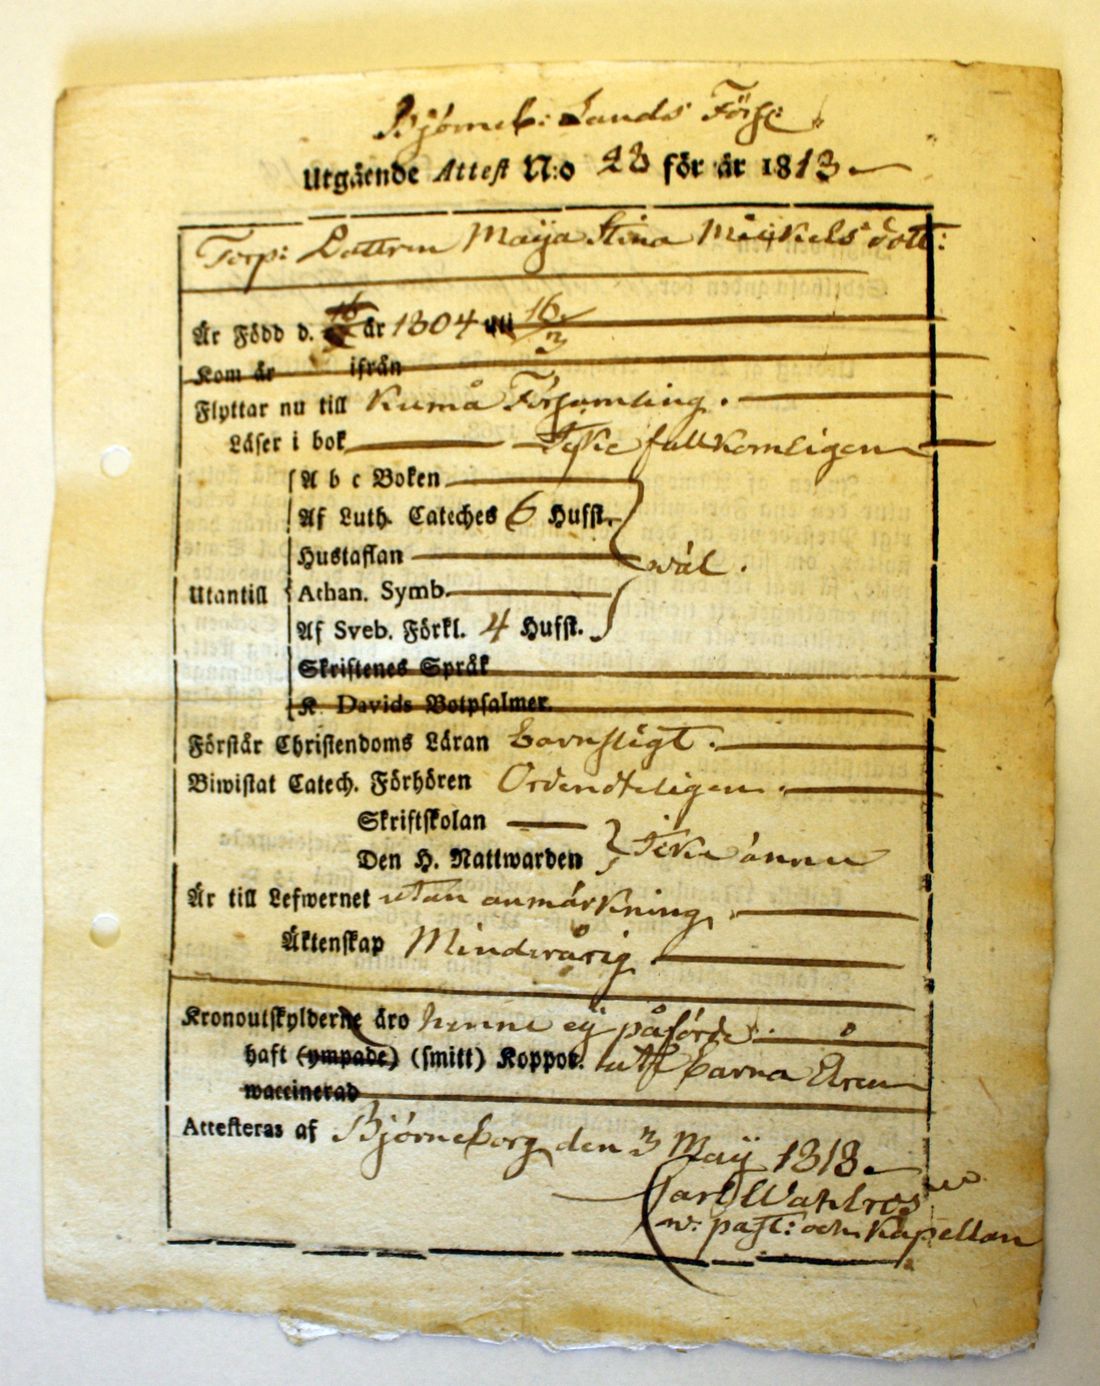 Björneb: Lands Förs:
Utgående Attest N:o 28 för år 1818
Torp: Dottren Maija Stina Mickels dott:
Är Född d. år 1804 16/3
Kom år ifrån
Flyttar nu till Kumå Församling.
Läser i bok Icke fullkomligen
A b c Boken
Af Luth. Cateches 6 Hufst.
Hustaflan wäl.
Utantill Athan. Symb.
Af Sveb. Förkl. 4 Hufst.
Skriftenes Språk
K. Davids Botpsalmer.
Förstår Christendoms Läran barnsligt.
Biwistat Catech. Förhören Ordenteligen.
Skriftskolan
Den H. Nattwarden Icke ännu
Är till Lefwernet utan anmärkning
Äktenskap Minderårig
Kronoutskylderne äro henne ej påförde.
haft (ympade) (smitt) Koppor. uti barna åren
waccinerad
Attesteras af Björneborg den 3 Maij 1818
Carl Wahlroos
w: past: och Kapellan